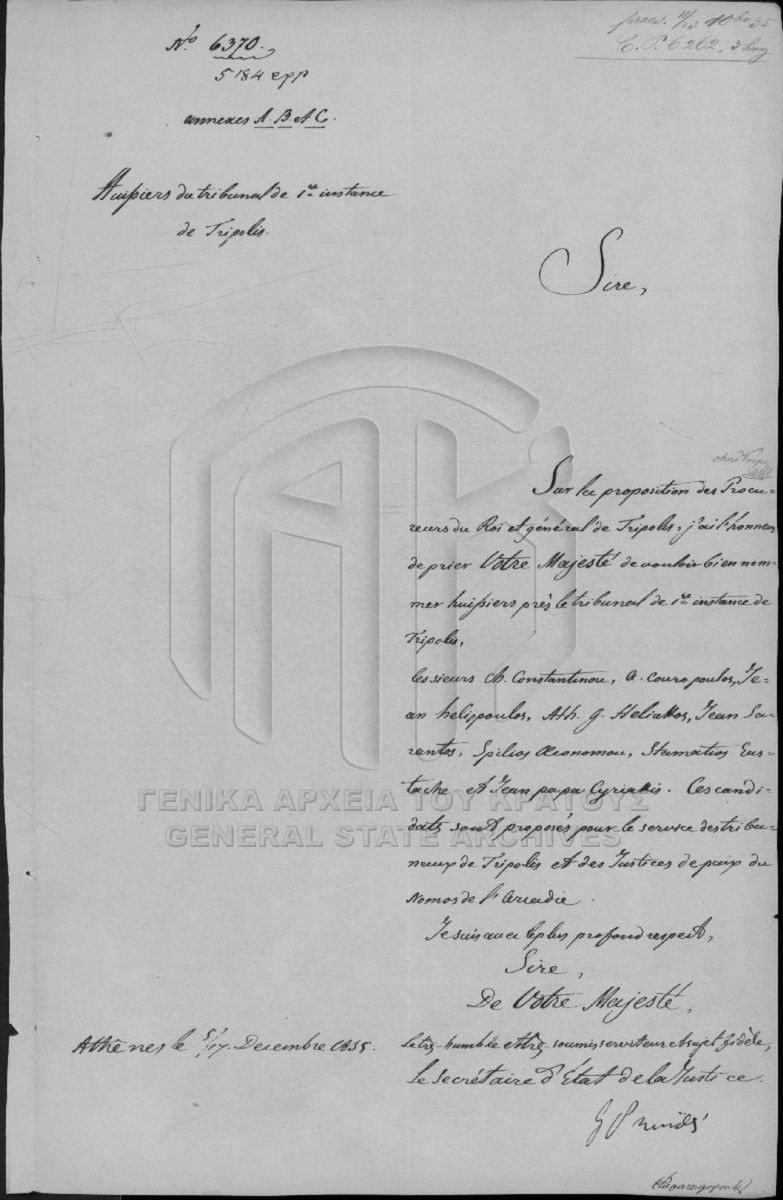 No 6370.
5184 epp
annexes A. B. et C.
Huissiers du tribunal de 1re instance
de Tripolis.
praes. 11/23 10br 35
C. P. 6262;
Sire,
Sur la proposition des Procu-
reurs du Roi et général de Tripolis, j'ai l'honneur
de prier Votre Majesté de vouloir bien nom-
mer huissiers près le tribunal de 1re instance de
Tripolis,
les sieurs Ch. Constantinou, A. Couropoulos, Je-
an heliopoulos, Ath. G. Heliakos, Jean Sa-
rantos, Spilios Œconomou, Stamatios Eus-
tache et Jean papa Cyriakis. Ces candi-
dats sont proposés pour le service des tribu-
naux de Tripolis et des Justices de paix du
Nomos de l'Arcadie.
Je suis avec le plus profond respect,
Sire,
De Votre Majesté,
Athènes le 5/17 Decembre 1835.
le très-humble et très soumis serviteur et sujet fidèle,
le secrétaire d'État de la Justice.
ΓΕΝΙΚΑ ΑΡΧΕΙΑ ΤΟΥ ΚΡΑΤΟΥΣ
GENERAL STATE ARCHIVES